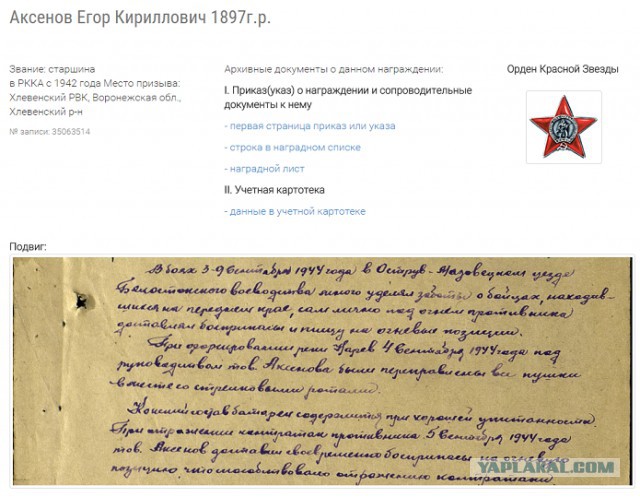 Аксенов Егор Кириллович 1897г.р.
Звание: старшина
в РККА с 1942 года Место призыва:
Хлевенский РВК, Воронежская обл.,
Хлевенский р-н
№ записи: 35063514
Архивные документы о данном награждении:
I. Приказ(указ) о награждении и сопроводительные
документы к нему
- первая страница приказ или указа
- строка в наградном списке
- наградной лист
II. Учетная картотека
- данные в учетной картотеке
Орден Красной Звезды
Подвиг:
В боях 3-9 Сентября 1944 года в Острув-Мазовецком уезде
Белостокского воеводства много уделял заботы о бойцах, находив-
шихся на переднем крае, сам лично под огнем противника
доставлял боеприпасы и пищу на огневые позиции.
При форсировании реки Нарев 4 Сентября 1944 года под
руководством тов. Аксенова были переправлены все пушки
вместе со стрелковыми ротами.
Конский состав батареи содержится при хорошей упитанности.
При отражении контратак противника 5 Сентября 1944 года
тов. Аксенов доставил своевременно боеприпасы на огневую
позицию что способствовало отражению контратаки
YAPLAKAL.COM